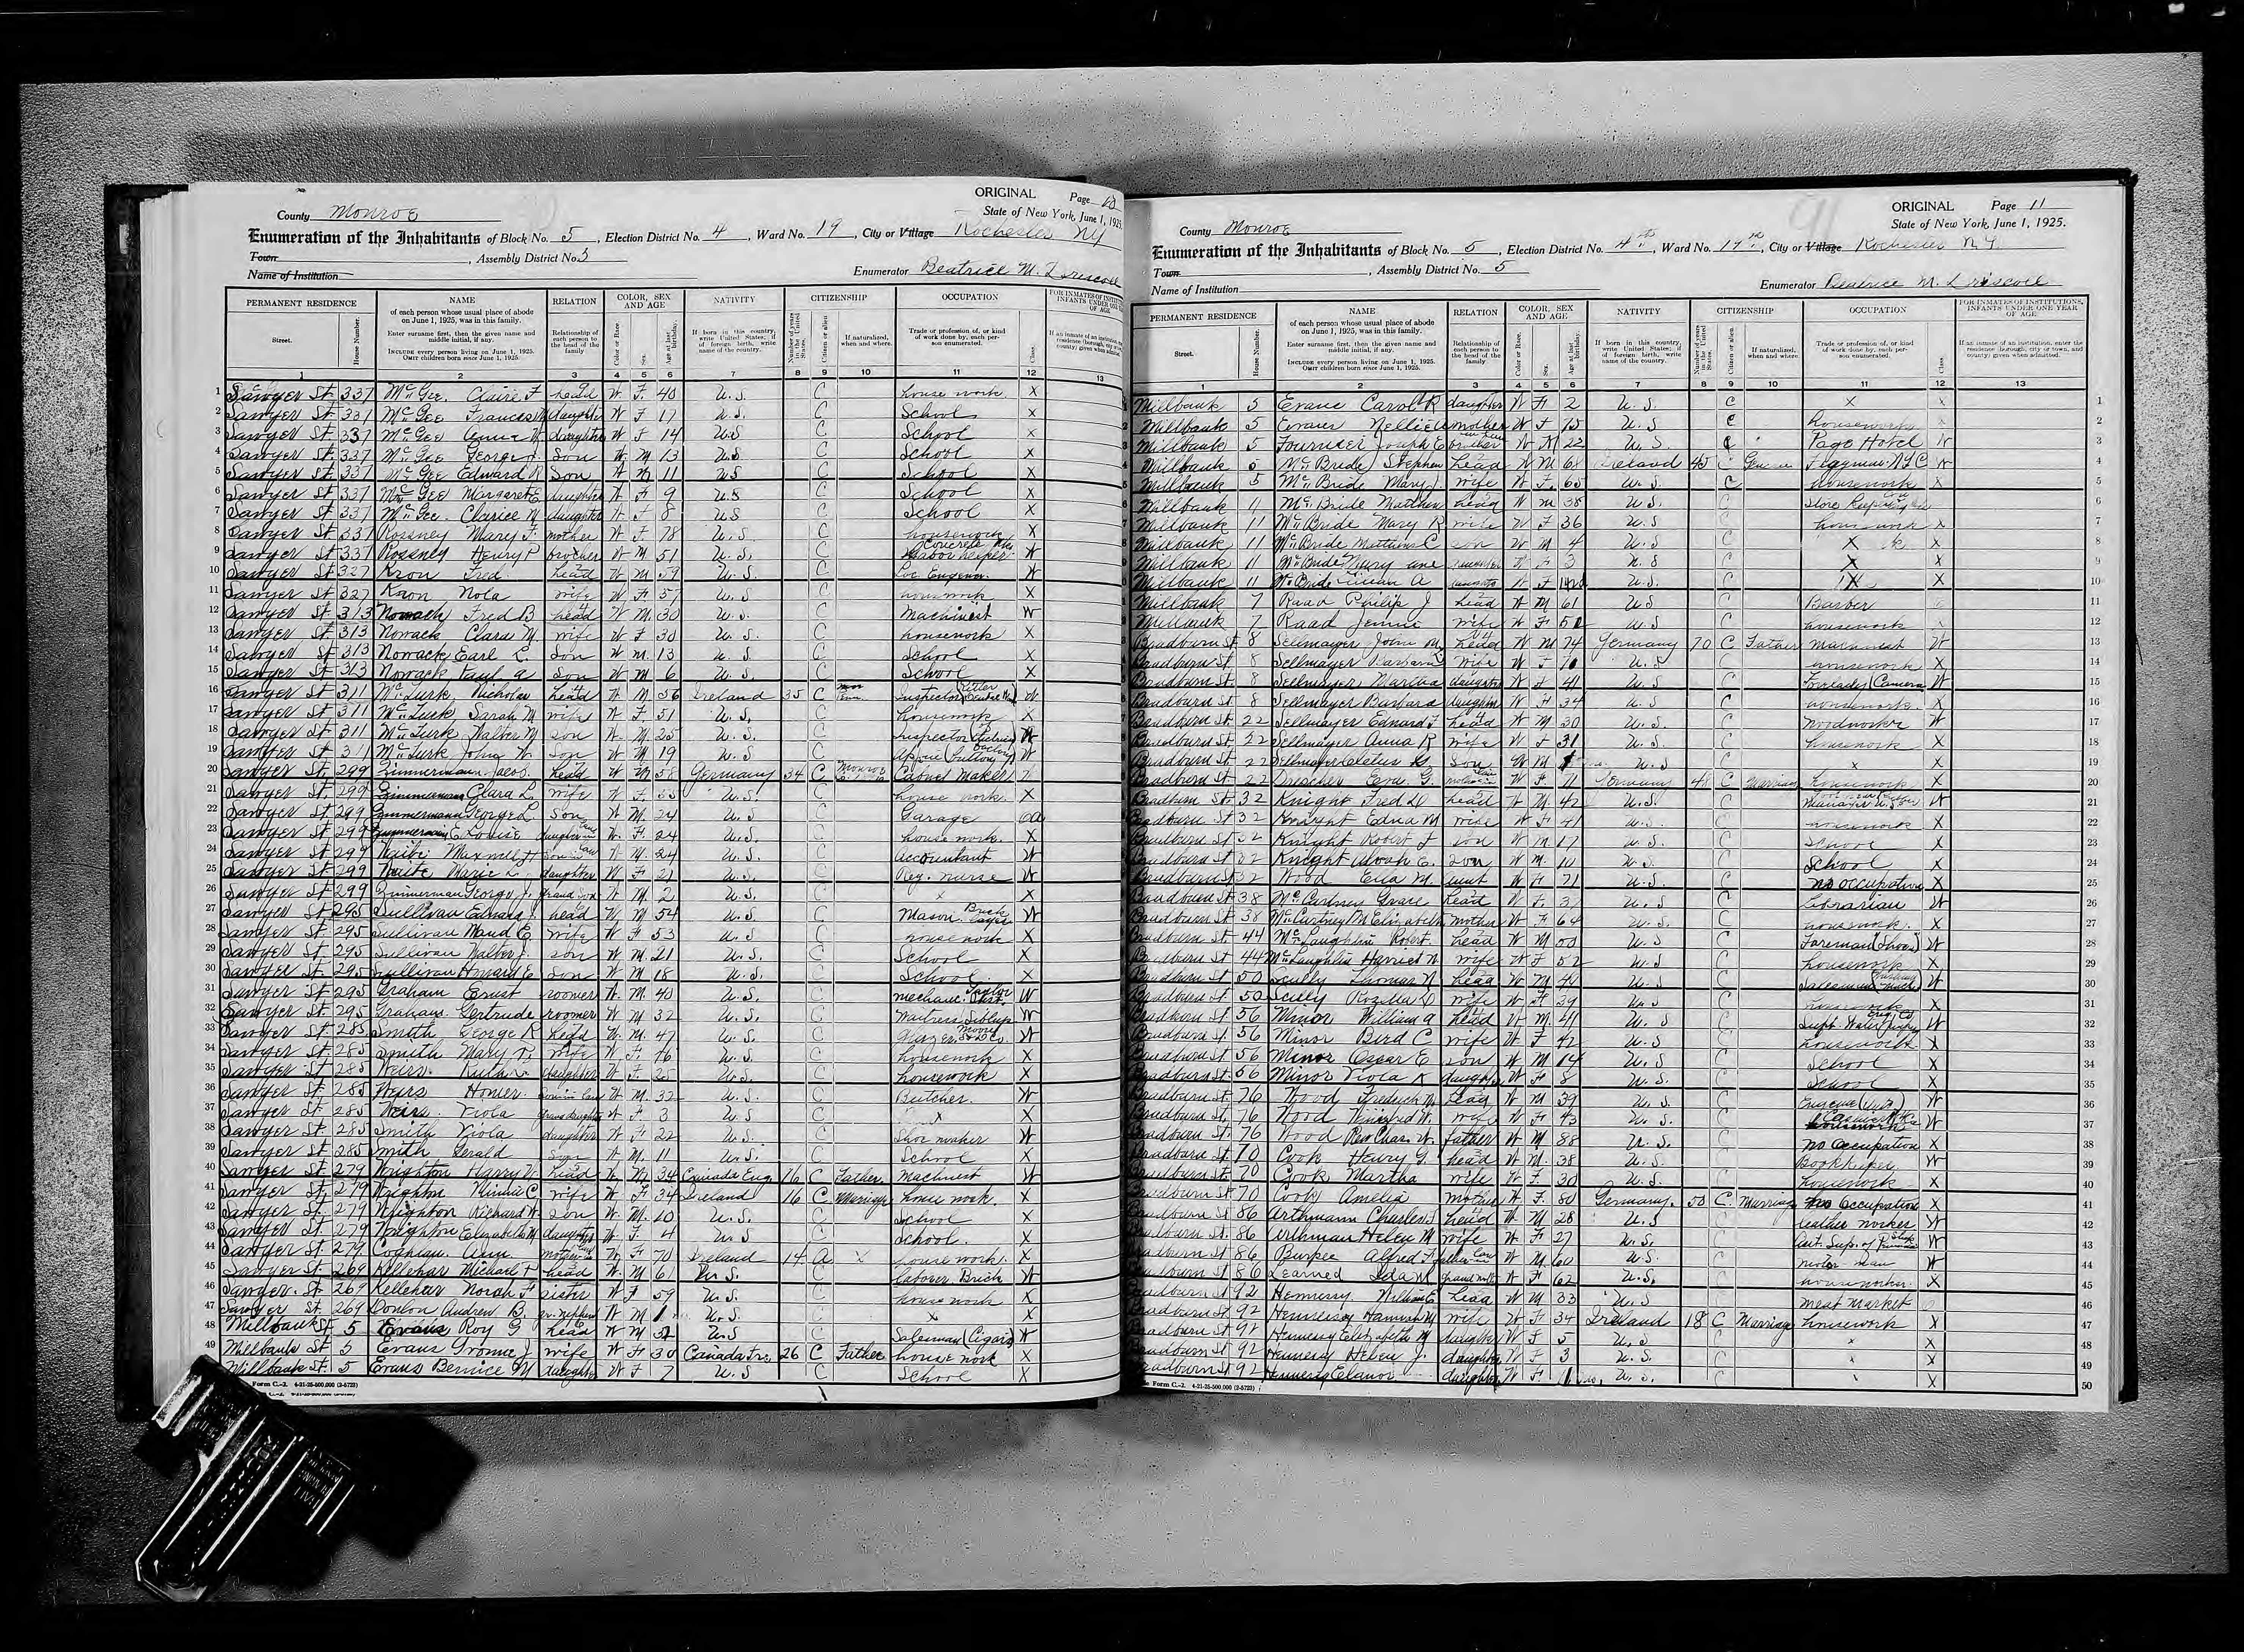 ORIGINAL Page 10
County Monroe State of New York, June 1, 1925.
Enumeration of the Inhabitants of Block No. 5, Election District No. 4, Ward No. 19, City or Village Rochester NY
Town , Assembly District No. 5
Name of Institution Enumerator Beatrice M. Driscoll
PERMANENT RESIDENCE NAME RELATION COLOR, SEX AND AGE NATIVITY CITIZENSHIP OCCUPATION
Street. House Number. of each person whose usual place of abode on June 1, 1925, was in this family. Enter surname first, then the given name and middle initial, if any. INCLUDE every person living on June 1, 1925. OMIT children born since June 1, 1925. Relationship of each person to the head of the family Color or Race. Sex. Age at last birthday. If born in this country, write United States; if of foreign birth, write name of the country. Number of years in the United States. Citizen or alien If naturalized, when and where. Trade or profession of, or kind of work done by, each person enumerated. Class.
1 2 3 4 5 6 7 8 9 10 11 12 13
1 Sawyer St 337 McGee, Claire F head W F 40 U.S. C house work X
2 Sawyer St 337 McGee Frances M daughter W F 17 U.S. C School X
3 Sawyer St 337 McGee Anna daughter W F 14 U.S C School X
4 Sawyer St 337 McGee George J. Son W M 13 U.S C School X
5 Sawyer St 337 McGee Edward R Son W M 11 U.S C School X
6 Sawyer St 337 McGee Margaret E daughter W F 9 U.S C School X
7 Sawyer St 337 McGee Clarice M daughter W F 8 U.S C School X
8 Sawyer St 337 Rossney Mary F. mother W F 78 U.S. C housework X
9 Sawyer St 337 Rossney Henry P brother W M 51 U.S. C Concrete W
10 Sawyer St 327 Kron Fred head W M 59 U.S. C Loc. Engineer W
11 Sawyer St 327 Kron Nola wife W F 57 U.S C housework X
12 Sawyer St 313 Nowack Fred B head W M 30 U.S. C Machinist W
13 Sawyer St 313 Nowack Clara M wife W F 30 U.S. C housework X
14 Sawyer St 313 Nowack Earl L. Son W M 13 U.S C School X
15 Sawyer St 313 Nowack Paul a Son W M 6 U.S. C School X
16 Sawyer St 311 McTurk, Nicholas head W M 56 Ireland 35 C Inspector W
17 Sawyer St 311 McTurk Sarah M wife W F 51 U.S. C housework X
18 Sawyer St 311 McTurk Walter M son W M 25 U.S. C Inspector W
19 Sawyer St 311 McTurk John W. Son W M 19 U.S C W
20 Sawyer St 299 Zimmerman Jacob head W M 58 Germany 34 C Monroe Cabinet Maker W
21 Sawyer St 299 Zimmerman Clara L wife W F 55 U.S. C house work X
22 Sawyer St 299 Zimmermann George L Son W M 24 U.S C Garage OA
23 Sawyer St 299 Zimmerman E. Louise daughter in law W F 24 U.S. C house work X
24 Sawyer St 299 Waite Maxwell H son in law W M 24 U.S. C Accountant W
25 Sawyer St 299 Waite Marie L. daughter W F 21 U.S. C Reg. nurse W
26 Sawyer St 299 Zimmerman George J. grand son W M 2 U.S. C X X
27 Sawyer St 295 Sullivan Edward J. head W M 54 U.S. C Mason Brick W
28 Sawyer St 295 Sullivan Maud E. wife W F 53 U.S C house work X
29 Sawyer St 295 Sullivan Walter J. son W M 21 U.S. C School X
30 Sawyer St 295 Sullivan Howard E son W M 18 U.S. C School X
31 Sawyer St 295 Graham Ernest roomer W M 40 U.S. C mechanic W
32 Sawyer St 295 Graham Gertrude roomer W M 32 U.S. C Waitress Sibleys W
33 Sawyer St 285 Smith George R head W M 47 U.S. C W
34 Sawyer St 285 Smith Mary T. wife W F 46 U.S. C housework X
35 Sawyer St 285 Weirs daughter W F 25 U.S. C housework X
36 Sawyer St 285 Weirs Homer son in law W M 32 U.S. C Butcher W
37 Sawyer St 285 Weirs Viola granddaughter W F 3 U.S C X X
38 Sawyer St 285 Smith Viola daughter W F 22 U.S. C Shoe worker W
39 Sawyer St 285 Smith Gerald Son W M 11 U.S. C School X
40 Sawyer St 279 Wrighton Harry W. head W M 34 Canada Eng 16 C Father Machinist W
41 Sawyer St 279 Wrighton Minnie C wife W F 34 Ireland 16 C Marriage house work X
42 Sawyer St 279 Wrighton Richard W. son W M 10 U.S. C School X
43 Sawyer St 279 Wrighton Elizabeth M daughter W F 4 U.S C School X
44 Sawyer St 279 Coghlan Ann mother in law W F 70 Ireland 14 A X house work X
45 Sawyer St 269 Kelleher Michael F head W M 61 U.S. C laborer Brick W
46 Sawyer St 269 Kelleher Norah F sister W F 59 U.S. C house work X
47 Sawyer St 269 Donlon Andrew B. gr. nephew W M 1 U.S. C X X
48 Millbank St 5 Evans Roy G head W M 32 U.S C Salesman (Cigars) W
49 Millbank St 5 Evans Yvonne J wife W F 30 Canada Fr. 26 C Father house work X
Millbank St. 5 Evans Bernice M daughter W F 7 U.S C School X
Form C.-2. 4-21-25-500,000 (2-5723)
ORIGINAL Page 11
County Monroe State of New York, June 1, 1925.
Enumeration of the Inhabitants of Block No. 5, Election District No. 4th, Ward No. 19, City or Village Rochester N.Y.
Town , Assembly District No. 5
Name of Institution Enumerator Beatrice M. Driscoll
PERMANENT RESIDENCE NAME RELATION COLOR, SEX AND AGE NATIVITY CITIZENSHIP OCCUPATION FOR INMATES OF INSTITUTIONS, INFANTS UNDER ONE YEAR OF AGE
Street. House Number. of each person whose usual place of abode on June 1, 1925, was in this family. Enter surname first, then the given name and middle initial, if any. INCLUDE every person living on June 1, 1925. OMIT children born since June 1, 1925. Relationship of each person to the head of the family Color or Race. Sex. Age at last birthday. If born in this country, write United States; if of foreign birth, write name of the country. Number of years in the United States. Citizen or alien If naturalized, when and where. Trade or profession of, or kind of work done by, each person enumerated. Class. If an inmate of an institution, enter the residence (borough, city or town, and county) given when admitted.
1 2 3 4 5 6 7 8 9 10 11 12 13
Millbank 5 Evans Carol R daughter W F 2 U.S. C X X 1
Millbank 5 Evans Nellie mother W F 75 U.S C housework X 2
Millbank 5 Fournier Joseph E brother in law W M 22 U.S. C Page Hotel W 3
Millbank 5 McBride Stephen head W M 68 Ireland 45 C Flagman N.Y.C W 4
Millbank 5 McBride Mary J. wife W F 65 U.S. C housework X 5
Millbank 11 McBride Matthew head W M 38 U.S. C Store Keeper 6
Millbank 11 McBride Mary R wife W F 36 U.S C housework X 7
Millbank 11 McBride Matthew C son W M 4 U.S C X X 8
Millbank 11 McBride Mary Jane daughter W F 3 U.S C X X 9
Millbank 11 McBride Lillian A daughter W F U.S. C X X 10
Millbank 7 Raad Philip J head W M 61 U.S C Barber 11
Millbank 7 Raad Jennie wife W F 50 U.S C housework X 12
Bradburn St. 8 Sellmayer John M. head W M 74 Germany 70 C Father Machinist W 13
Bradburn St. 8 Sellmayer Barbara wife W F 70 U.S C housework X 14
Bradburn St. 8 Sellmayer Martha daughter W F 41 U.S C Forelady (Camera) W 15
Bradburn St. 8 Sellmayer Barbara daughter W F 34 U.S C housework X 16
Bradburn St. 22 Sellmayer Edward F head W M 30 U.S. C Woodworker W 17
Bradburn St. 22 Sellmayer Anna R wife W F 31 U.S. C housework X 18
Bradburn St. 22 Sellmayer Cletus G Son W M 1 U.S. C X X 19
Bradburn St. 22 Drescher Eva G. mother in law W F 71 Germany 48 C Marriage housework X 20
Bradburn St. 32 Knight Fred D head W M 42 U.S. C Manager W 21
Bradburn St 32 Knight Edna M wife W F 41 U.S. C housework X 22
Bradburn St 32 Knight Robert F son W M 17 U.S. C School X 23
Bradburn St 32 Knight Alvah E. son W M 10 U.S. C School X 24
Bradburn St 32 Wood Ella M. aunt W F 71 U.S. C no occupation X 25
Bradburn St 38 McCartney Grace head W F 37 U.S C Librarian W 26
Bradburn St. 38 McCartney M Elizabeth mother W F 64 U.S. C housework X 27
Bradburn St. 44 McLaughlin Robert head W M 50 U.S C Foreman (Shoes) W 28
Bradburn St 44 McLaughlin Harriet N wife W F 52 U.S C housework X 29
Bradburn St 50 Scully Thomas N head W M 44 U.S C Salesman W 30
Bradburn St. 50 Scully Rozella D wife W F 39 U.S C housework X 31
Bradburn St. 56 Minor William A head W M 41 U.S C Supt. Water W 32
Bradburn St. 56 Minor Bird C wife W F 42 U.S C housework X 33
Bradburn St 56 Minor Oscar E son W M 14 U.S C School X 34
Bradburn St 56 Minor Viola K daughter W F 8 U.S. C School X 35
Bradburn St 76 Wood Frederick M head W M 39 U.S. C W 36
Bradburn St. 76 Wood Winifred W. wife W F 43 U.S. C W 37
Bradburn St. 76 Wood Rev Chas. W. father W M 88 U.S. C no occupation X 38
Bradburn St. 70 Cook Henry G. head W M 38 U.S. C Bookkeeper W 39
Bradburn St. 70 Cook Martha wife W F 30 U.S. C housework X 40
Bradburn St 70 Cook Amelia mother W F 80 Germany 50 C Marriage no Occupation X 41
Bradburn St 86 Arthmann Charles F head W M 28 U.S C leather worker W 42
Bradburn St. 86 Arthmann Helen M wife W F 27 U.S. C W 43
Bradburn St 86 Burpee Alfred F father in law W M 60 U.S. C motor man W 44
Bradburn St 86 Learned Ida M grand mother W F 62 U.S. C houseworker X 45
Bradburn St 92 Hennessy William E. head W M 33 U.S C meat market 46
Bradburn St 92 Hennessy Hannah M wife W F 34 Ireland 18 C Marriage housework X 47
Bradburn St 92 Hennessy Elizabeth M daughter W F 5 U.S C X X 48
Bradburn St 92 Hennessy Helen J. daughter W F 3 U.S. C X X 49
Bradburn St 92 Hennessy Elanor daughter W F U.S. C X 50
Form C.-2. 4-21-25-500,000 (2-5723)